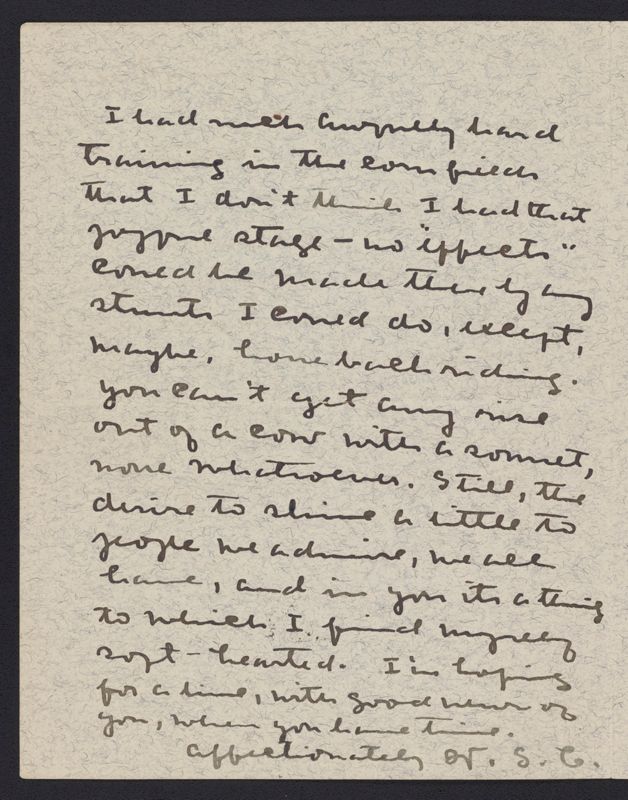 I had such awfully hard
training in the corn fields
that I don't think I had that
joyful stage - no "effects"
could be made there by any
stunts I could do, except,
maybe, horse back riding.
you can't get any rise
out of a cow with a sonnet,
none whatsoever. Still, the
desire to shine a little to
people we admire, we all
have, and in you its a thing
to which I find myself
soft-hearted. I'm hoping
for a line, with good news of
you, when you have time.
Affectionately W. S. C.